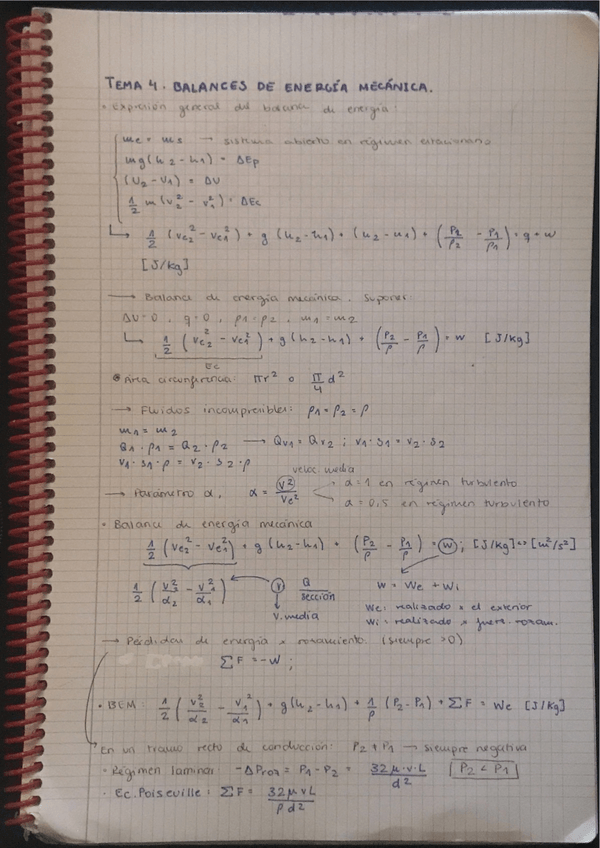 TEMA 4. BALANCES DE ENERGÍA MECÁNICA.
• Expresión general del balance de energía:
me = ms → sistema abierto en régimen estacionario
mg(h2-h1) = ΔEp
(U2-U1) = ΔU
1/2 m(v2² - v1²) = ΔEc
↳ 1/2 (ve2² - ve1²) + g(h2-h1) + (u2-u1) + (P2/ρ2 - P1/ρ1) = q + w
[J/kg]
→ Balance de energía mecánica. Suponer:
ΔU=0, q=0, ρ1=ρ2, m1=m2
↳ 1/2 (ve2² - ve1²) + g(h2-h1) + (P2/ρ - P1/ρ) = w [J/kg]
Ec
• Área circunferencia: πr² o π/4 d²
→ Fluidos incompresibles: ρ1 = ρ2 = ρ
m1 = m2
Q1·ρ1 = Q2·ρ2 → Qv1 = Qv2 ; v1·s1 = v2·s2
v1·s1·ρ = v2·s2·ρ
veloc. media
→ Parámetro α, α = v²/ve²
→ α=1 en régimen turbulento
→ α=0,5 en régimen turbulento
• Balance de energía mecánica
1/2 (ve2² - ve1²) + g(h2-h1) + (P2/ρ - P1/ρ) = w ; [J/kg] ↔ [m²/s²]
1/2 (v2²/α2 - v1²/α1) ← v Q/sección w = We + Wi
v. media
We: realizado x el exterior
Wi: realizado x fuerz. rozam.
→ Pérdidas de energía x rozamiento. (siempre >0)
ΣF = -W ;
• BEM: 1/2 (v2²/α2 - v1²/α1) + g(h2-h1) + 1/ρ (P2-P1) + ΣF = We [J/kg]
En un tramo recto de conducción: P2 + P1 → siempre negativa
• Régimen laminar: -ΔProz = P1-P2 = 32μ·v·L/d² P2 < P1
• Ec. Poiseville: ΣF = 32μvL/ρd²